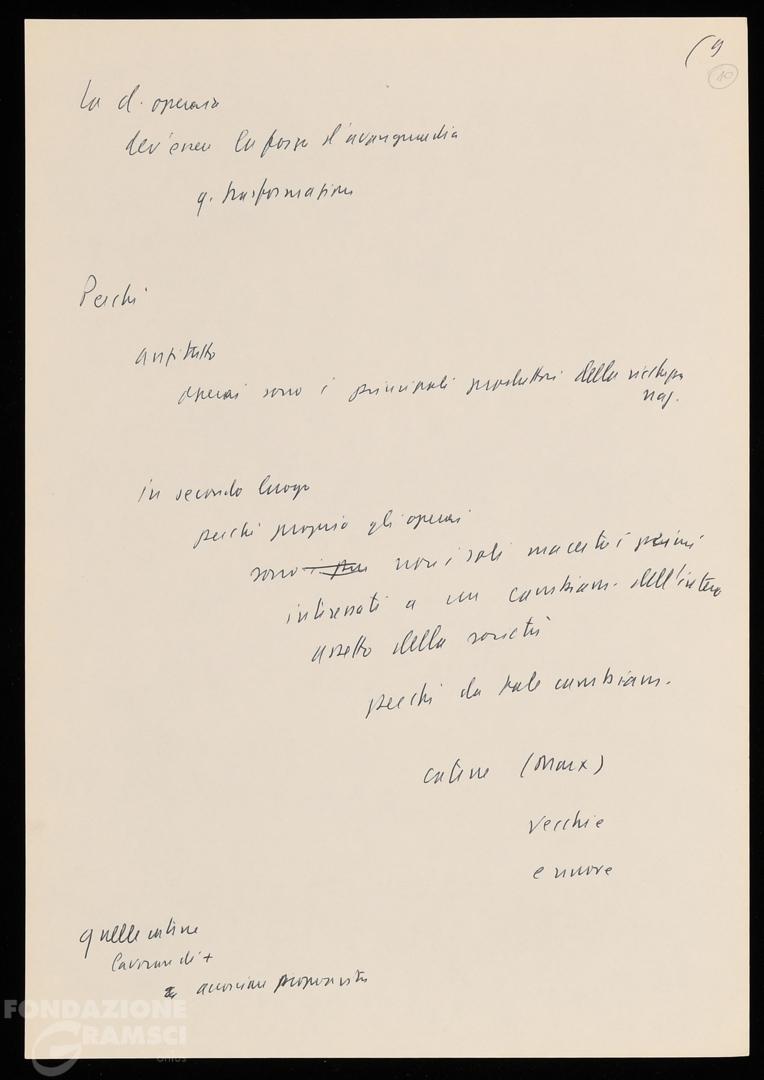 (9
10
La cl. operaia
dev'essere la forza d'avanguardia
q. trasformazione
Perché
anzitutto
operai sono i principali produttori della ricchezza
naz.
in secondo luogo
perché proprio gli operai
sono i pri non i soli ma certo i primi
interessati a un cambiam. dell'intero
assetto della società
perché da tale cambiam.
catene (Marx)
vecchie
e nuove
quelle catene
lavorare di +
FONDAZIONE
GRAMSCI
ONLUS